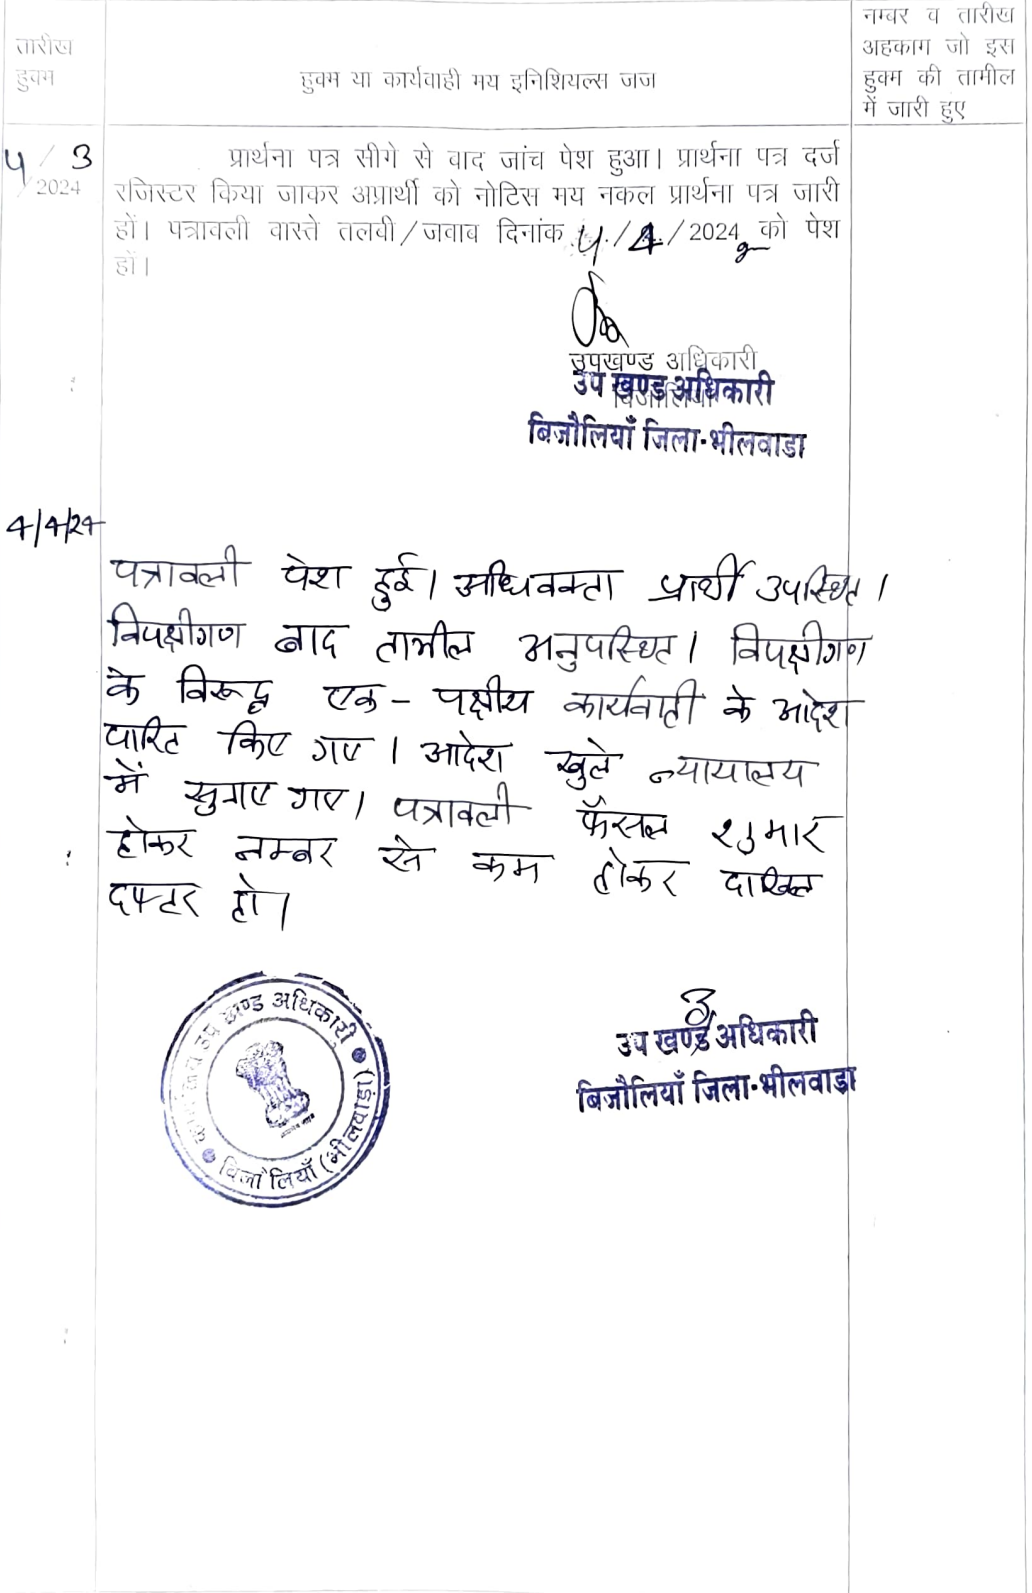 तारीख
हुक्म
हुक्म या कार्यवाही मय इनिशियल्स जज
नम्बर व तारीख
अहकाम जो इस
हुक्म की तामील
में जारी हुए
4/3
/2024
प्रार्थना पत्र सीगे से बाद जांच पेश हुआ। प्रार्थना पत्र दर्ज
रजिस्टर किया जाकर अप्रार्थी को नोटिस मय नकल प्रार्थना पत्र जारी
हों। पत्रावली वास्ते तलबी/जवाब दिनांक 4/4/2024 को पेश
हों।
उपखण्ड अधिकारी
बिजौलियां
उप खण्ड अधिकारी
बिजौलियाँ जिला-भीलवाडा
4/4/24
पत्रावली पेश हुई। अधिवक्ता प्रार्थी उपस्थित।
विपक्षीगण बाद तामील अनुपस्थित। विपक्षीगण
के विरूद्ध एक-पक्षीय कार्यवाही के आदेश
पारित किए गए। आदेश खुले न्यायालय
में सुनाए गए। पत्रावली फैसल शुमार
होकर नम्बर से कम होकर दाखिल
दफ्तर हो।
उप खण्ड अधिकारी
बिजौलियाँ जिला-भीलवाडा
उप खण्ड अधिकारी
बिजौलियाँ (भीलवाडा)